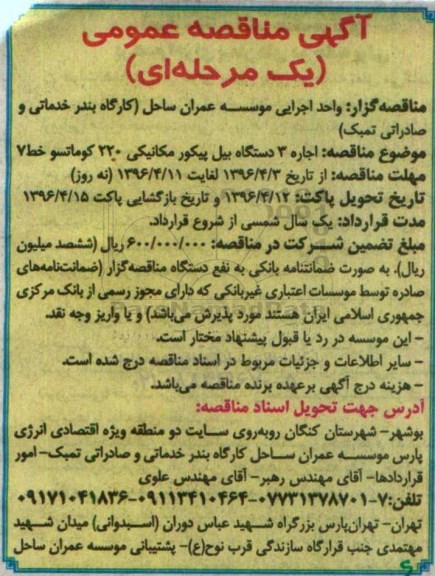 آگهی مناقصه عمومی
(یک مرحله‌ای)
مناقصه‌گزار: واحد اجرایی موسسه عمران ساحل (کارگاه بندر خدماتی و
صادراتی تمبک)
موضوع مناقصه: اجاره ۳ دستگاه بیل پیکور مکانیکی ۲۲۰ کوماتسو خط۷
مهلت مناقصه: از تاریخ ۱۳۹۶/۴/۳ لغایت ۱۳۹۶/۴/۱۱ (نه روز)
تاریخ تحویل پاکت: ۱۳۹۶/۴/۱۲ و تاریخ بازگشایی پاکت ۱۳۹۶/۴/۱۵
مدت قرارداد: یک سال شمسی از شروع قرارداد.
مبلغ تضمین شرکت در مناقصه: ۶۰۰/۰۰۰/۰۰۰ ریال (ششصد میلیون
ریال). به صورت ضمانتنامه بانکی به نفع دستگاه مناقصه‌گزار (ضمانت‌نامه‌های
صادره توسط موسسات اعتباری غیربانکی که دارای مجوز رسمی از بانک مرکزی
جمهوری اسلامی ایران هستند مورد پذیرش می‌باشد) و یا واریز وجه نقد.
– این موسسه در رد یا قبول پیشنهاد مختار است.
– سایر اطلاعات و جزئیات مربوط در اسناد مناقصه درج شده است.
– هزینه درج آگهی برعهده برنده مناقصه می‌باشد.
آدرس جهت تحویل اسناد مناقصه:
بوشهر– شهرستان کنگان روبه‌روی سایت دو منطقه ویژه اقتصادی انرژی
پارس موسسه عمران ساحل کارگاه بندر خدماتی و صادراتی تمبک– امور
قراردادها– آقای مهندس رهبر– آقای مهندس علوی
تلفن:۷-۰۷۷۳۱۳۷۸۷۰۱-۰۹۱۱۳۴۱۰۴۶۴-۰۹۱۷۱۰۴۱۸۳۶
تهران– تهران‌پارس بزرگراه شهید عباس دوران (اسبدوانی) میدان شهید
مهتمدی جنب قرارگاه سازندگی قرب نوح(ع)– پشتیبانی موسسه عمران ساحل